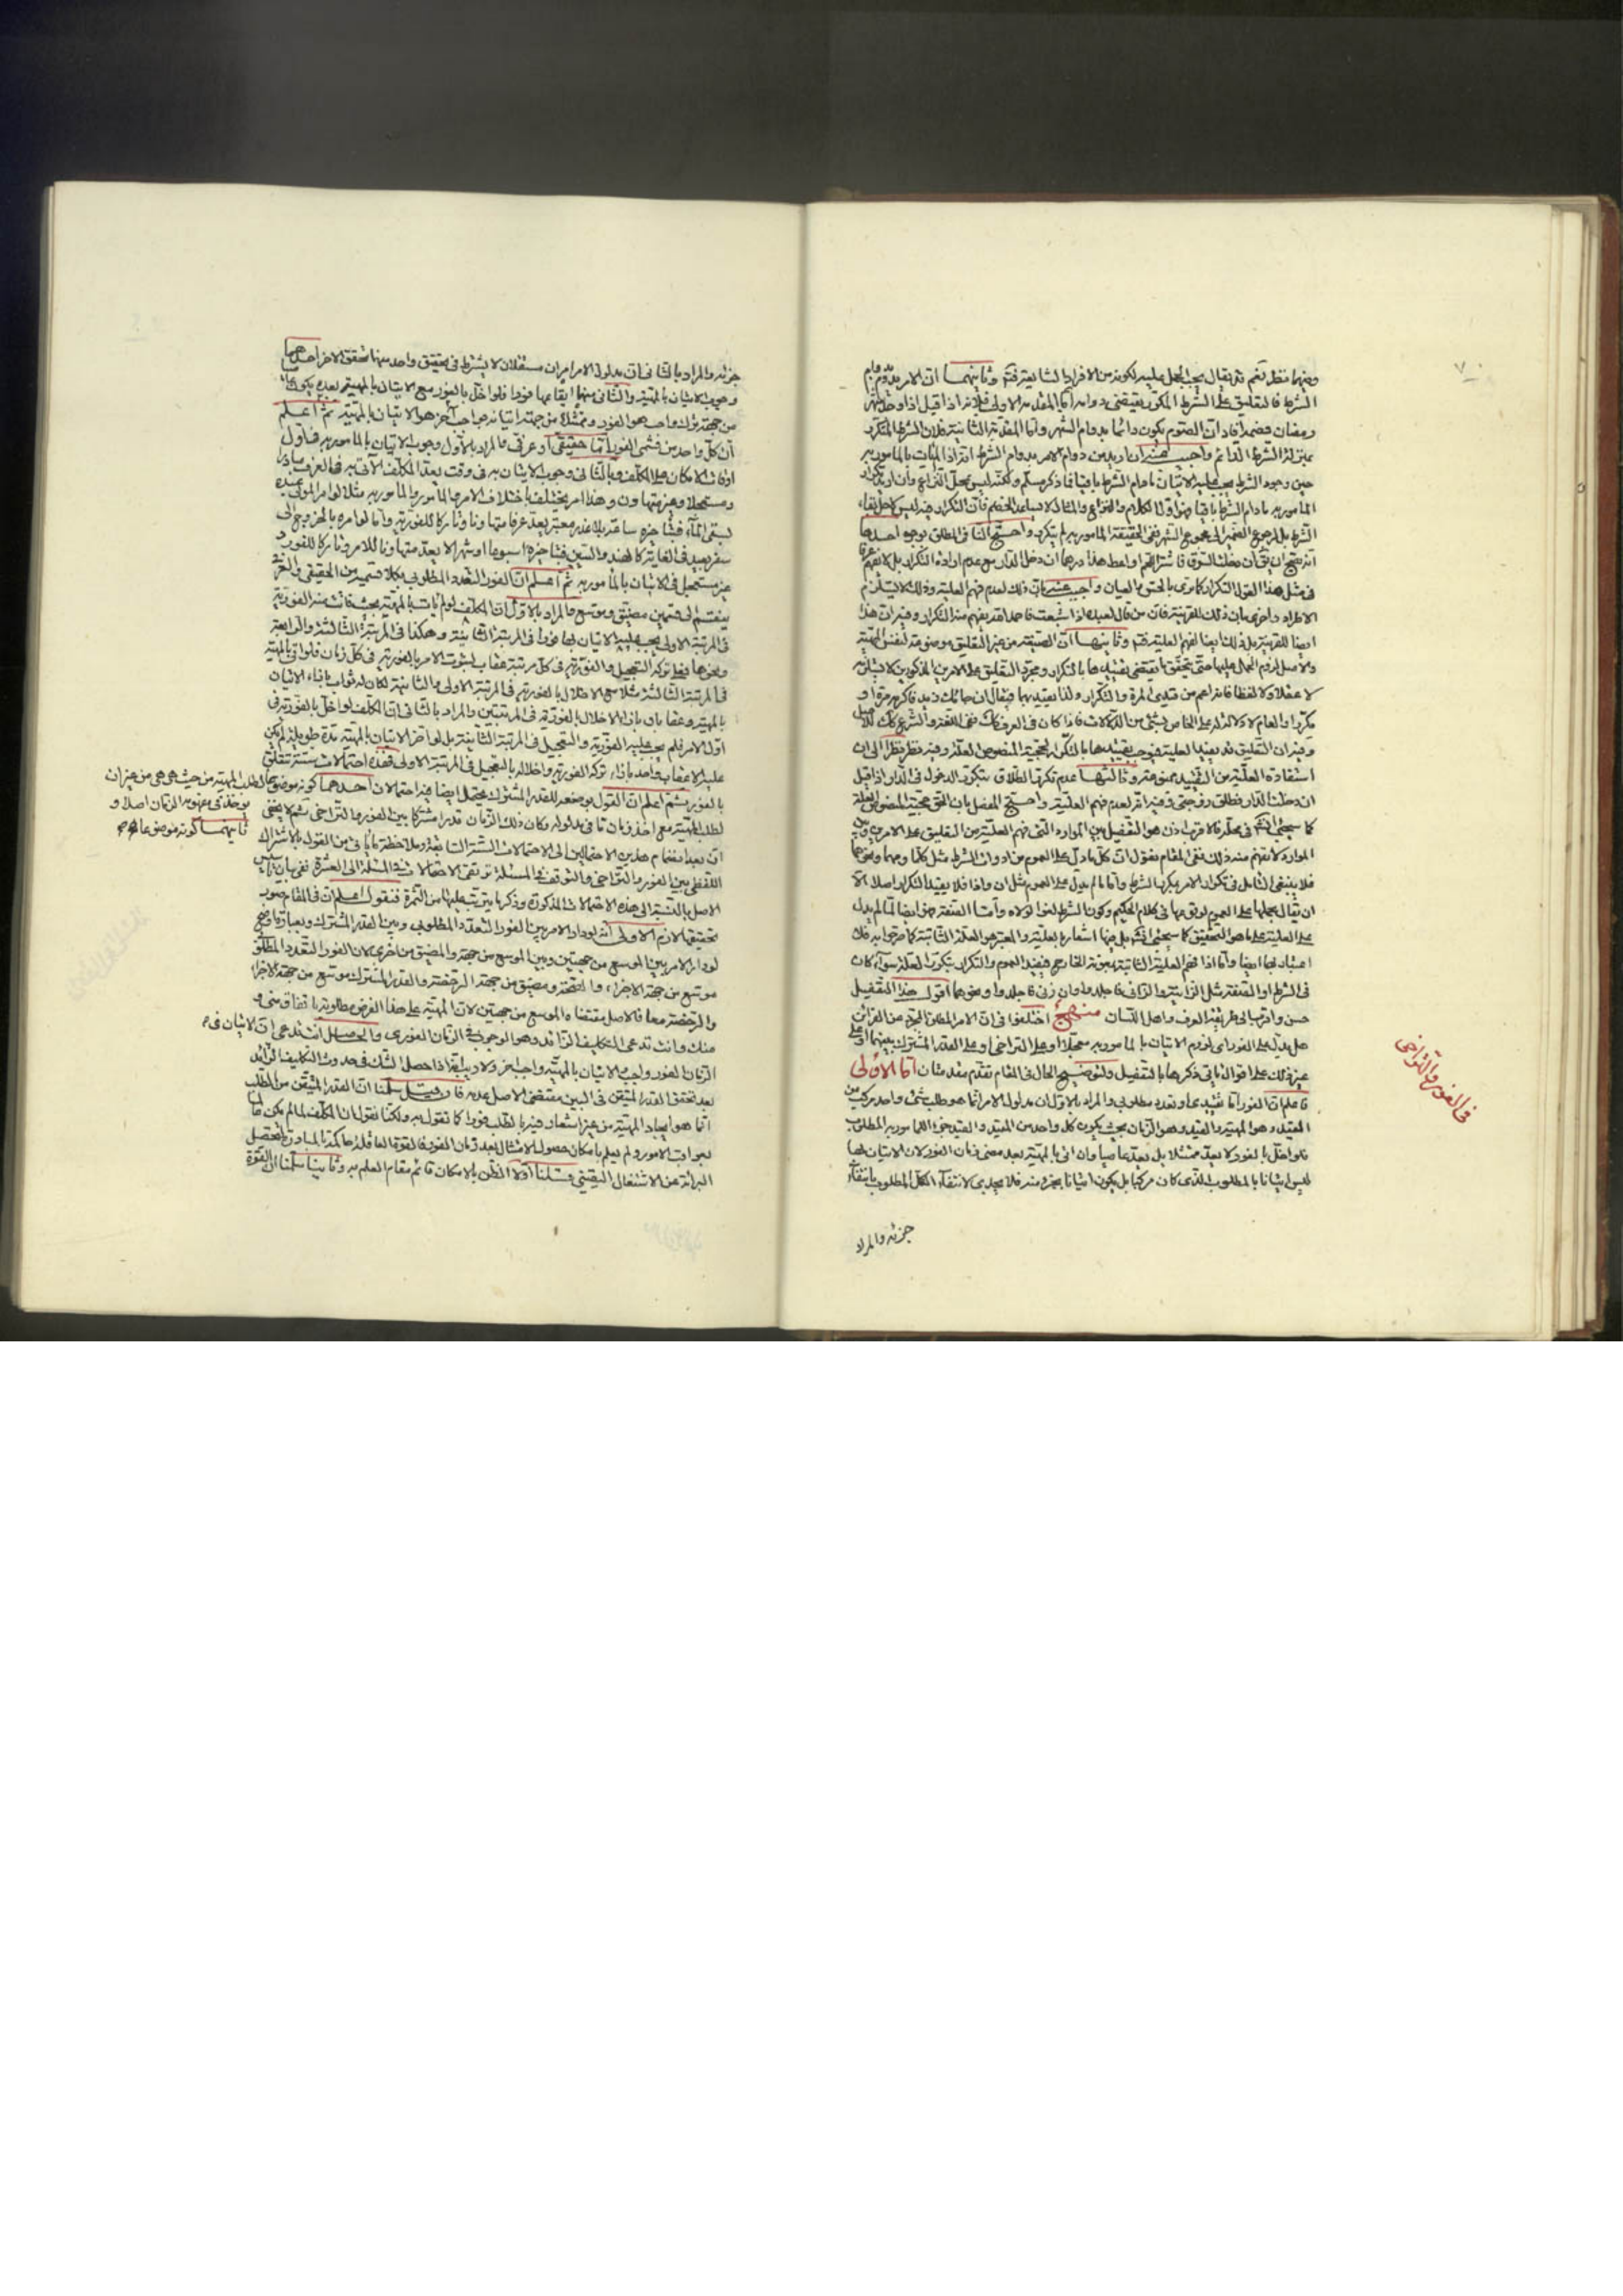 وفيهما نظر نعم قد يقال يجب الحمل عليه لكونه من الافراد الشايعة فتم وثانيهما ان الامر يدوم بدوام
الشرط فالتعليق على الشرط المتكرر يقتضى دوامه اما المقدمة الاولى فلانه اذا قيل اذا دخل شهر
رمضان فصم افاد ان الصوم يكون دائما بدوام الشهر واما المقدمة الثانية فلان الشرط المتكرر
بمنزلة الشرط الدائم واجيب عنه بان اريد من دوام الامر بدوام الشرط انه اذا لم يات بالمامور به
حين وجود الشرط يجب عليه الاتيان مادام الشرط باقيا فما ذكر مسلم ولكنه ليس محل النزاع وان اريد تكرار
المامور به مادام الشرط باقيا فهو اول الكلام والنزاع والمثال لا يساعد الخصم فان التكرار فيه ليس لاجل بقاء
الشرط بل لرجوع الضمير الى مجموع الشهر ففى الحقيقة المامور به لم يتكرر واحتج النافى المطلق بوجوه احدها
انه يصح ان يق ان دخلت السوق فاشتر اللحم واعط هذا درهما ان دخل الدار مع عدم ارادة التكرار بل لا يفهم عرفا
فى مثل هذا القول التكرار كما يرى بالحس والعيان واجيب عنه بان ذلك لعدم فهم العلية وذلك لا يستلزم
الاطراد واخرى بان ذلك للقرينة فان من قال لعبده اذا شبعت فاحمد الله يفهم منه التكرار وفيه ان هذا
ايضا للقرينة بل ذلك ايضا لفهم العلية فتم وثانيها ان الصيغة من غير التعليق موضوعة لنفس المهية
والاصل لزوم العمل عليها حتى يتحقق ما يقتضى تقييدها بالتكرار ومجرد التعليق على الامرين المذكورين لا يقتضيه
لا عقلا ولا لفظا فانه اعم من قيدى المرة والتكرار ولذا يقيد بهما فيقال ان جائك زيد فاكرمه مرة او
مكررا والعام لا دلالة له على الخاص بشئ من الدلالات فاذا كان فى العرف كك ففى اللغة والشرع كك للاصل
وفيه ان التعليق قد يفيد العلية فيوجب تقييدها بالتكرار لحجية المنصوص العلة وفيه نظر نظرا الى ان
استفادة العلية من التقييد ممنوعة وثالثها عدم تكرر الطلاق بتكرر الدخول فى الدار اذا قيل
ان دخلت الدار فطلق زوجتى وفيه انه لعدم فهم العلية واحتج المفصل بان الحق حجية المنصوص العلة
كما سيجئ انش فى محله فالاقرب اذن هو التفصيل بين الموارد التى فهم العلية من التعليق على الامرين وبين
الموارد لا يفهم منه ذلك ففى المقام نقول ان كل ما دل على العموم من ادوات الشرط مثل كلما ومهما ونحوهما
فلا ينبغى التامل فى تكرار الامر بتكرار الشرط واما ما لم يدل على العموم مثل ان واذا فلا يفيد التكرار اصلا الا
ان يقال بحملها على العموم لوقوعها فى كلام الحكيم وكون الشرط لغوا لولاه واما الصفة فهى ايضا لما لم يدل
على العلية على ما هو التحقيق كما سيجئ انش بل فيها اشعار بعلية والمعتبر هو العلة الثابتة كما صرحوا به فلا
اعتبار بها ايضا واما اذا فهم العلية الثابتة بمعونة الخارج فيفيد العموم والتكرار بتكرر العلة سواء كان
فى الشرط او الصفة مثل الزانية والزانى فاجلدوا وان زنى فاجلدوا ونحوهما اقول هذا التفصيل
حسن واقرب الى طريقة العرف واهل اللسان منهج اختلفوا فى ان الامر المطلق المجرد عن القرائن
هل يدل على الفور اى لزوم الاتيان بالمامور به معجلا او على التراخى او على القدر المشترك بينهما او على
غير ذلك على اقوال ياتى ذكرها بالتفصيل ولتوضيح الحال فى المقام نقدم مقدمتان اما الاولى
فاعلم ان الفور اما تقييدى او تعدد مطلوبى والمراد بالاول ان مدلول الامر انما هو طلب شئ واحد مركب من
المقيد وهو المهية والقيد وهو الزمان بحيث يكون كل واحد من المقيد والقيد جزءا للمامور به المطلوب
فلو اخل بالفور لا يعد ممتثلا بل يعد عاصيا وان اتى بالمهية بعد مضى زمان الفور لان الاتيان بها
ليس اتيانا بالمطلوب الذى كان مركبا بل يكون اتيانا بجزء منه فلا يجدى لانتفاء الكل المطلوب بانتفاء
جزئه والمراد
فى الفور والتراخى
٧٠
جزئه والمراد بالثانى ان مدلول الامر امران مستقلان لا يشترط فى تحقيق واحد منهما تحقق الاخر احدهما
وجوب الاتيان بالمهية والثانى منهما ايقاعها فورا فلو اخل بالفور مع الاتيان بالمهية بعده يكون عاصيا
من جهة ترك واجب هو الفور وممتثلا من جهة اتيانه بواجب آخر هو الاتيان بالمهية ثم اعلم
ان كلا واحد من قسمى الفور اما حقيقى او عرفى والمراد بالاول وجوب الاتيان بالمامور به فى اول
اوقات الامكان على المكلف وبالثانى وجوب الاتيان به فى وقت يعد المكلف الآتى به فى العرف مبادرا
ومستعجلا وغير متهاون وهذا امر يختلف باختلاف الامر والمامور والمامور به مثلا لو امر المولى عبده
بسقى الماء فبتاخيره ساعة بلا عذر معتبر يعد عرفا متهاونا وتاركا للفورية واما لو امره بالخروج الى
سفر بعيد فى الغاية كالهند والصين فبتاخيره اسبوعا او شهرا لا يعد متهاونا للامر وتاركا للفور و
غير مستعجل فى الاتيان بالمامور به ثم اعلم ان الفور التعدد المطلوبى بكلا قسميه من الحقيقى والعرفى
ينقسم الى قسمين مضيق وموسع والمراد بالاول ان المكلف لو لم يات بالمهية بحيث فاتت منه الفورية
فى المرتبة الاولى يجب عليه الاتيان بها فورا فى المرتبة الثانية وهكذا فى المرتبة الثالثة والرابعة
ونحوها فعلى تركه التعجيل والفورية فى كل مرتبة عقاب لثبوت الامر بالفورية فى كل زمان فلو اتى بالمهية
فى المرتبة الثالثة مثلا مع الاخلال بالفورية فى المرتبة الاولى والثانية لكان له ثواب بازاء الاتيان
بالمهية وعقابان بازاء الاخلال بالفورية فى المرتبتين والمراد بالثانى ان المكلف لو اخل بالفورية فى
اول الامر فلم يجب عليه الفورية والتعجيل فى المرتبة الثانية بل لو اخر الاتيان بالمهية مدة طويلة لم يكن
عليه الا عقاب واحد بازاء تركه الفورية واخلاله بالتعجيل فى المرتبة الاولى فهذه احتمالات ستة تتعلق
بالفور ثم اعلم ان القول بوضعه للقدر المشترك يحتمل ايضا فيه احتمالان احدهما كونه موضوعا لطلب المهية من حيث هى هى من غير ان
يؤخذ فى مفهومه الزمان اصلا و
ثانيهما كونه موضوعا
لطلب المهية مع اخذ زمان ما فى مدلوله وكان ذلك الزمان قدرا مشتركا بين الفور والتراخى ثم لا يخفى
ان بعد انضمام هذين الاحتمالين الى الاحتمالات الستة السابقة وملاحظة ما ياتى من القول بالاشتراك
اللفظى بين الفور والتراخى والتوقف فى المسئلة ترتقى الاحتمالات فى المسئلة الى العشرة
الاصل بالنسبة الى هذه الاحتمالات المذكورة وذكر ما يترتب عليها من الثمرة فنقول اعلم ان فى المقام صور
تحقيقها لازم الاولى انه لو دار الامر بين الفور التعدد المطلوبى وبين القدر المشترك وبعبارة اوضح
لو دار الامر بين الموسع من جهتين وبين الموسع من جهة والمضيق من اخرى لان الفور التعدد المطلوبى
موسع من جهة الاجزاء والصحة ومضيق من جهة الرخصة والقدر المشترك موسع من جهة الاجزاء
والرخصة معا فالاصل مقتضاه الموسع من جهتين لان المهية على هذا الفرض مطلوبة باتفاق منى و
منك وانت تدعى التكليف الزائد وهو الوجوب فى الزمان الفورى والحاصل انت تدعى ان الاتيان فى
الزمان الفور واجب والاتيان بالمهية واجب اخر ولا ريب انه اذا حصل الشك فى حدوث التكليف الزائد
بعد تحقق القدر المتيقن فى البين مقتضى الاصل عدمه فان قيل سلمنا ان القدر المتيقن من الطلب
انما هو ايجاد المهية من غير اشعار فيه بالطلب فورا كما تقول به ولكنا نقول ان المكلف لما لم يكن عالما
بعواقب الامور ولم يعلم بامكان حصول الامتثال بعد زمان الفور فالقوة العاقلة حاكمة بالمبادرة لتحصيل
البرائة عن الاشتغال اليقينى قلنا اولا الظن بالامكان قائم مقام العلم به وثانيا سلمنا ان القوة